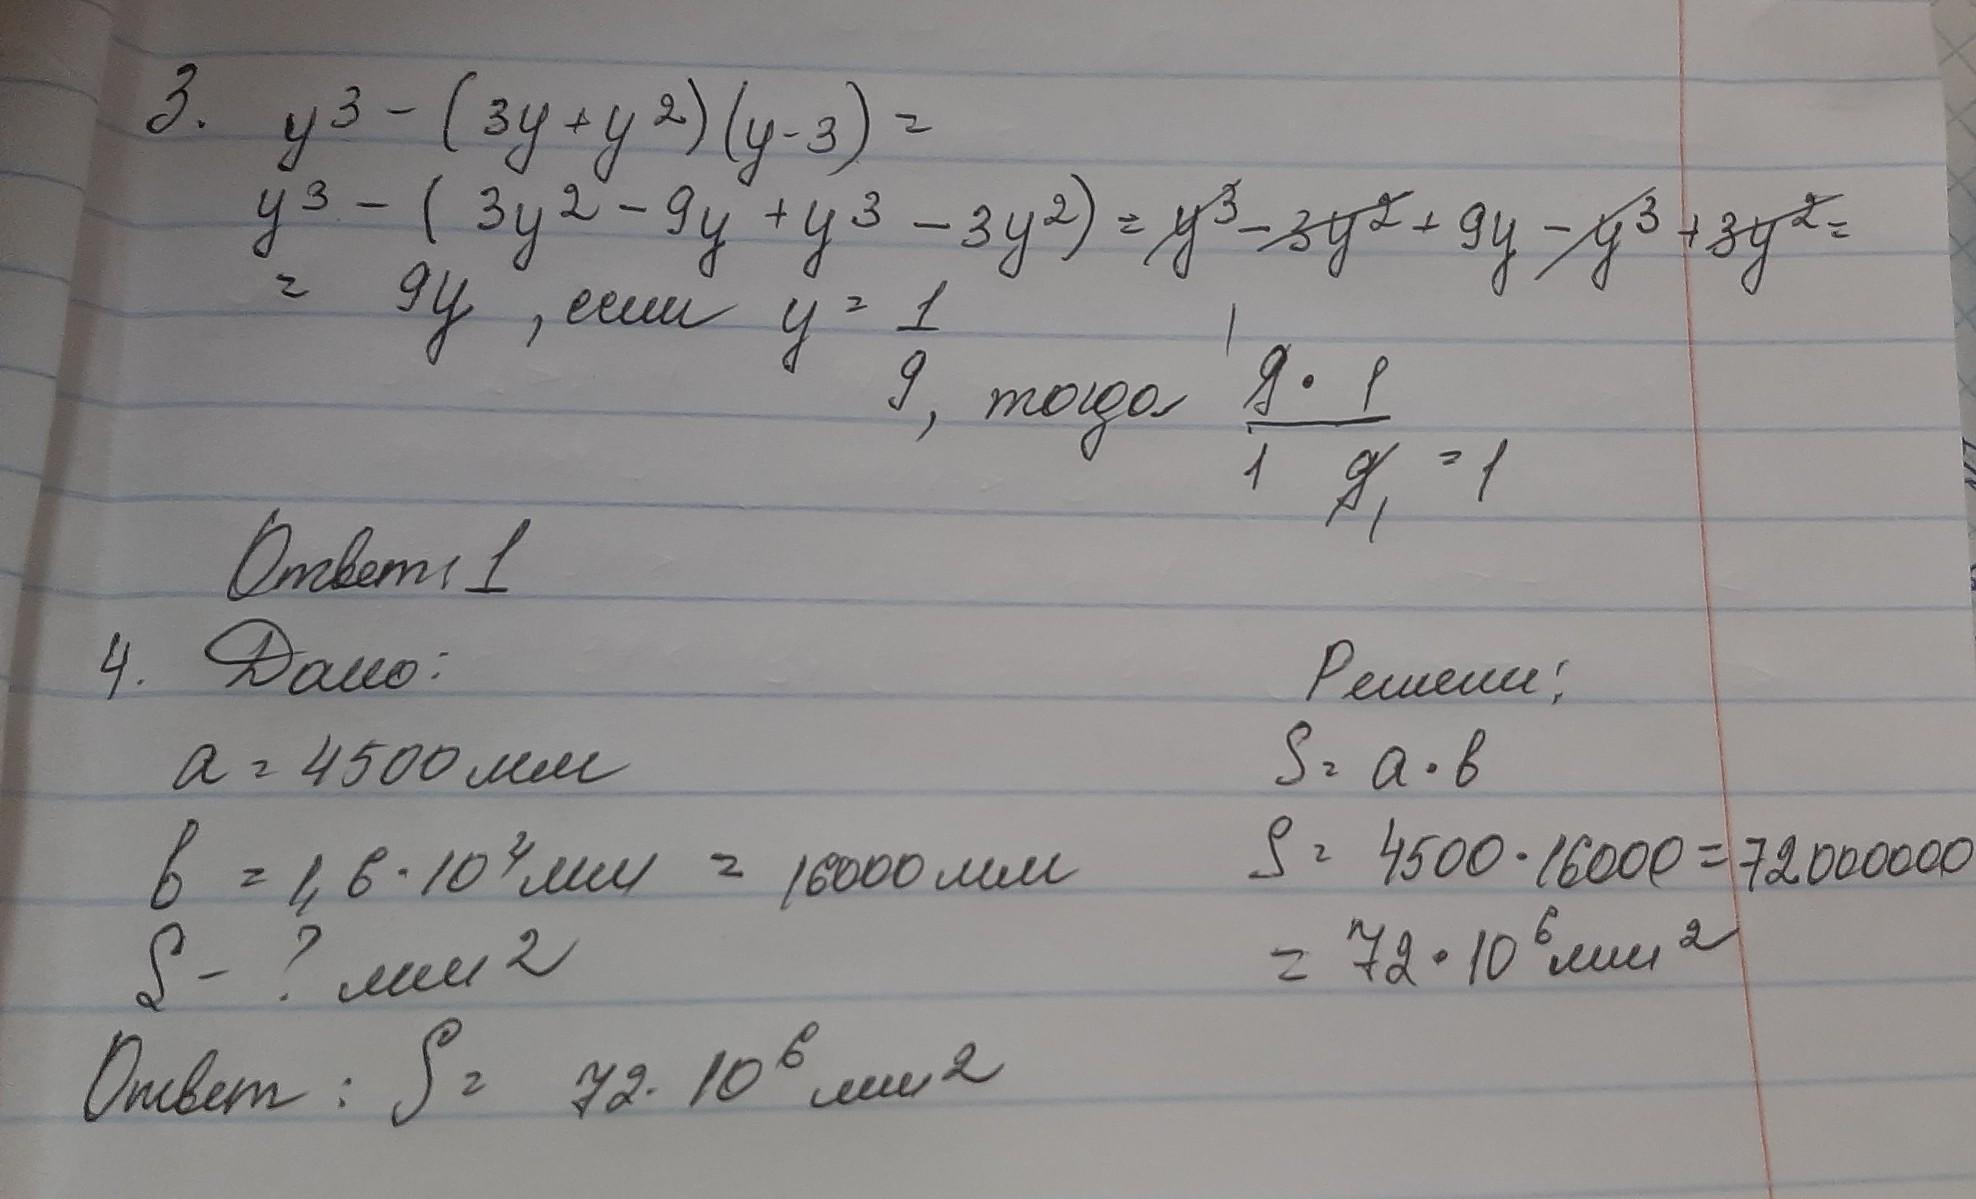 3. y³ - (3y + y²)(y - 3) =
y³ - (3y² - 9y + y³ - 3y²) = y³ - 3y² + 9y - y³ + 3y² =
= 9y, если y = 1/9, тогда 9 · 1 / 1 9 = 1
Ответ: 1
4. Дано:
a = 4500 мм
b = 1,6 · 10⁴ мм = 16000 мм
S - ? мм²
Решени:
S = a · b
S = 4500 · 16000 = 72000000
= 72 · 10⁶ мм²
Ответ: S = 72 · 10⁶ мм²